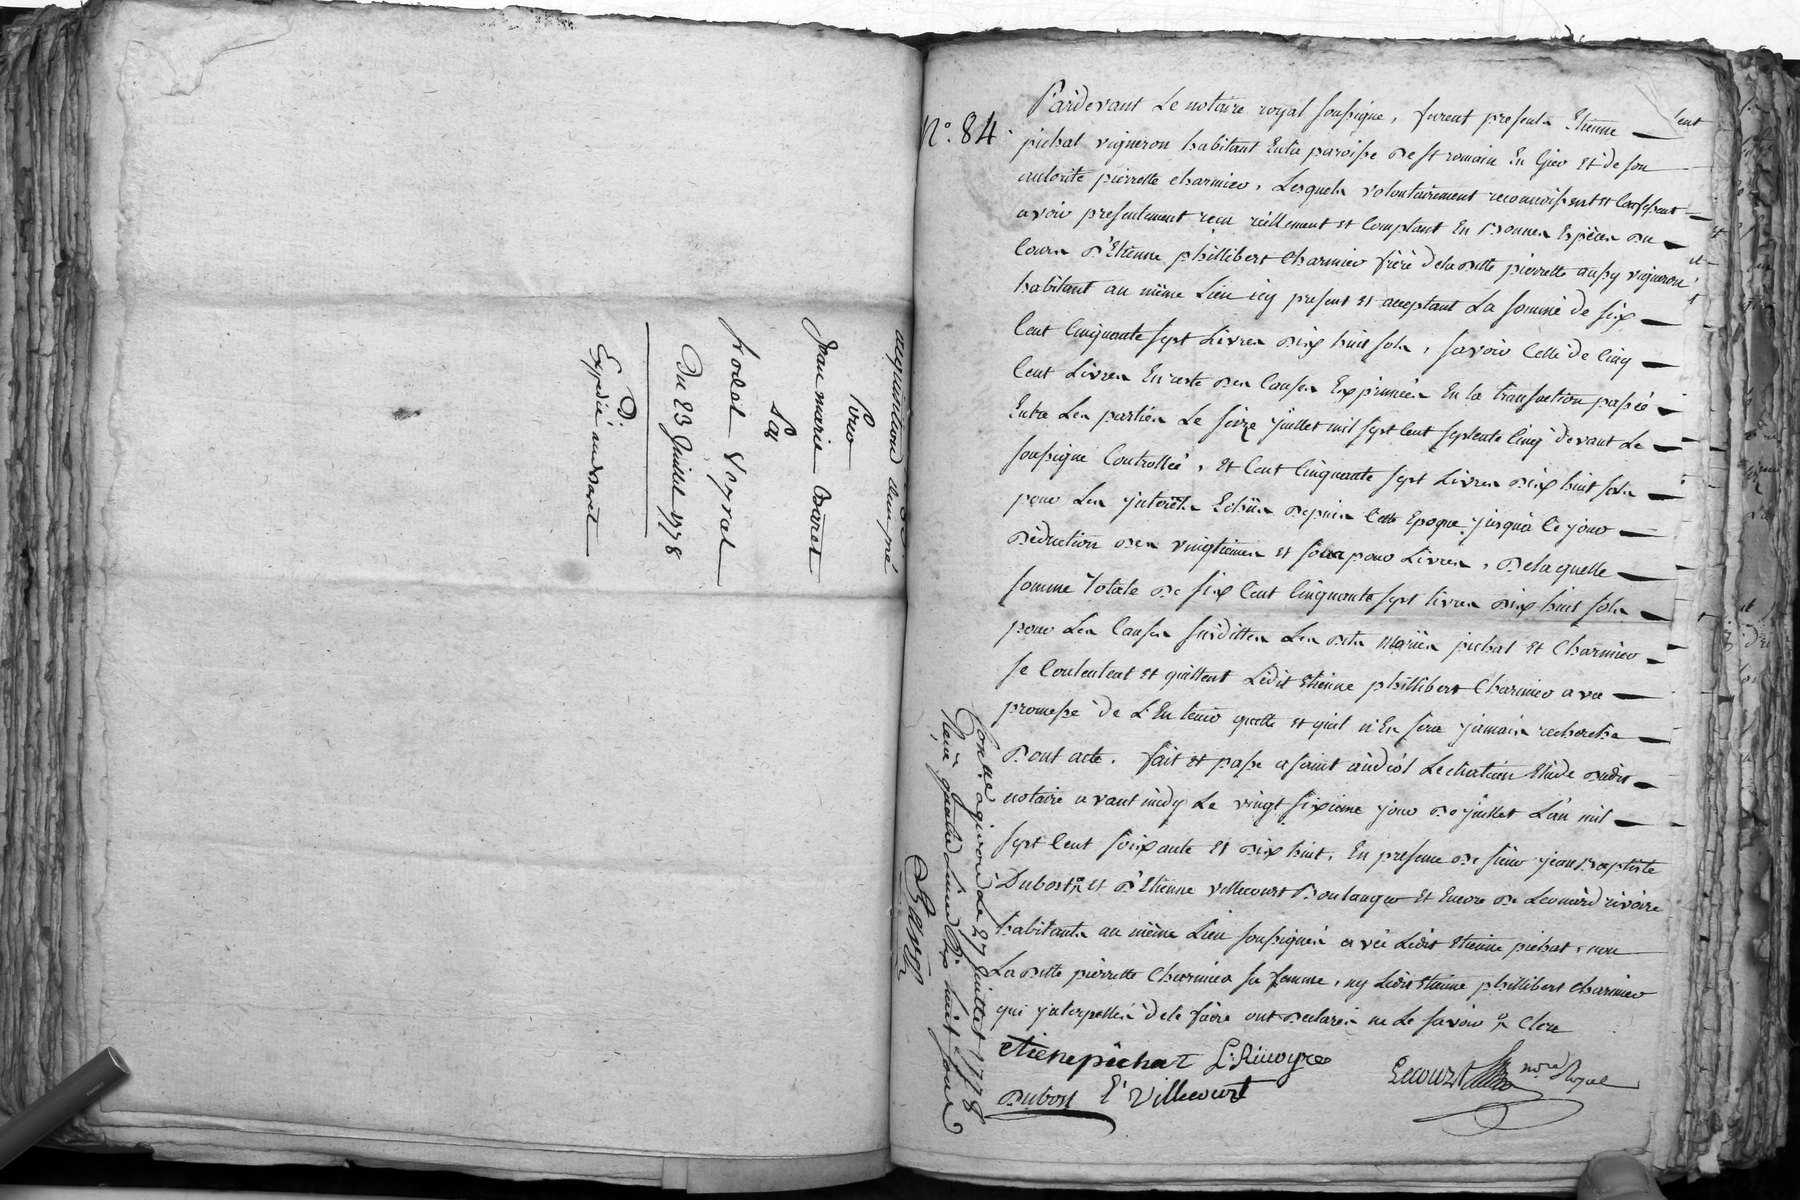 acquisition d'un pré
Pour
Jean marie Baret
Sa
fodat Veyrat
Du 23 Juillet 1778
Expedié au Baret
N.o 84.
Pardevant Le notaire royal soussigne, furent present Etienne
pichat vigneron habitant En la paroisse de st romain En Gier Et de son
autorité pierrette charmier, Lesquels volontairement reconnoissent et Confessent
avoir presentement recu réellement et comptant En Bonnes Espèces du
Cours d'Etienne phillibert Charmier frère de la ditte pierrette aussy vigneron
habitant au même Lieu icy present et acceptant La somme de six
Cent Cinquante sept Livres dix huit sols, savoir Celle de Cinq
Cent Livres En reste des Causes Exprimées En la transaction passée
Entre Les parties Le seize juillet mil sept Cent septente Cinq devant Le
soussigne Controllée, Et Cent Cinquante sept Livres dix huit sols
pour Les jnterêts Echus depuis Cette Epoque jusqua Ce jour
déduction des vingtiemes et sous pour Livres, de laquelle
somme totale de six Cent Cinquante sept livres dix huit sols
pour Les Causes susdittes Les dits Mariés pichat et Charmier
se Contentent et quittent Ledit Etienne phillibert Charmier avec
promesse de L'En tenir quitte et qu'il n'En sera jamais recherché
Dont acte. fait et passé a saint andéol Le chateau Etude dudit
notaire avant midy Le vingt sixième jour de juillet L'an mil
sept Cent soixante et dix huit, En presence de sieur jean Baptiste
Dubost et d'Etienne villecourt Boulanger Et Encore de Leonard rivoire
habitants au même Lieu soussignés avec Ledit Etienne pichat, non
La ditte pierrette Charmier sa femme, ny Ledit Etienne phillibert Charmier
qui jnterpellés de le faire ont declarés ne Le savoir
etiene pichat L. Rivoyre
Dubost E. Villecourt
Lecourt nore Royal
Conllé a givors Le 27 Juillet 1778
Reçu quatre Livres Dix huit sous